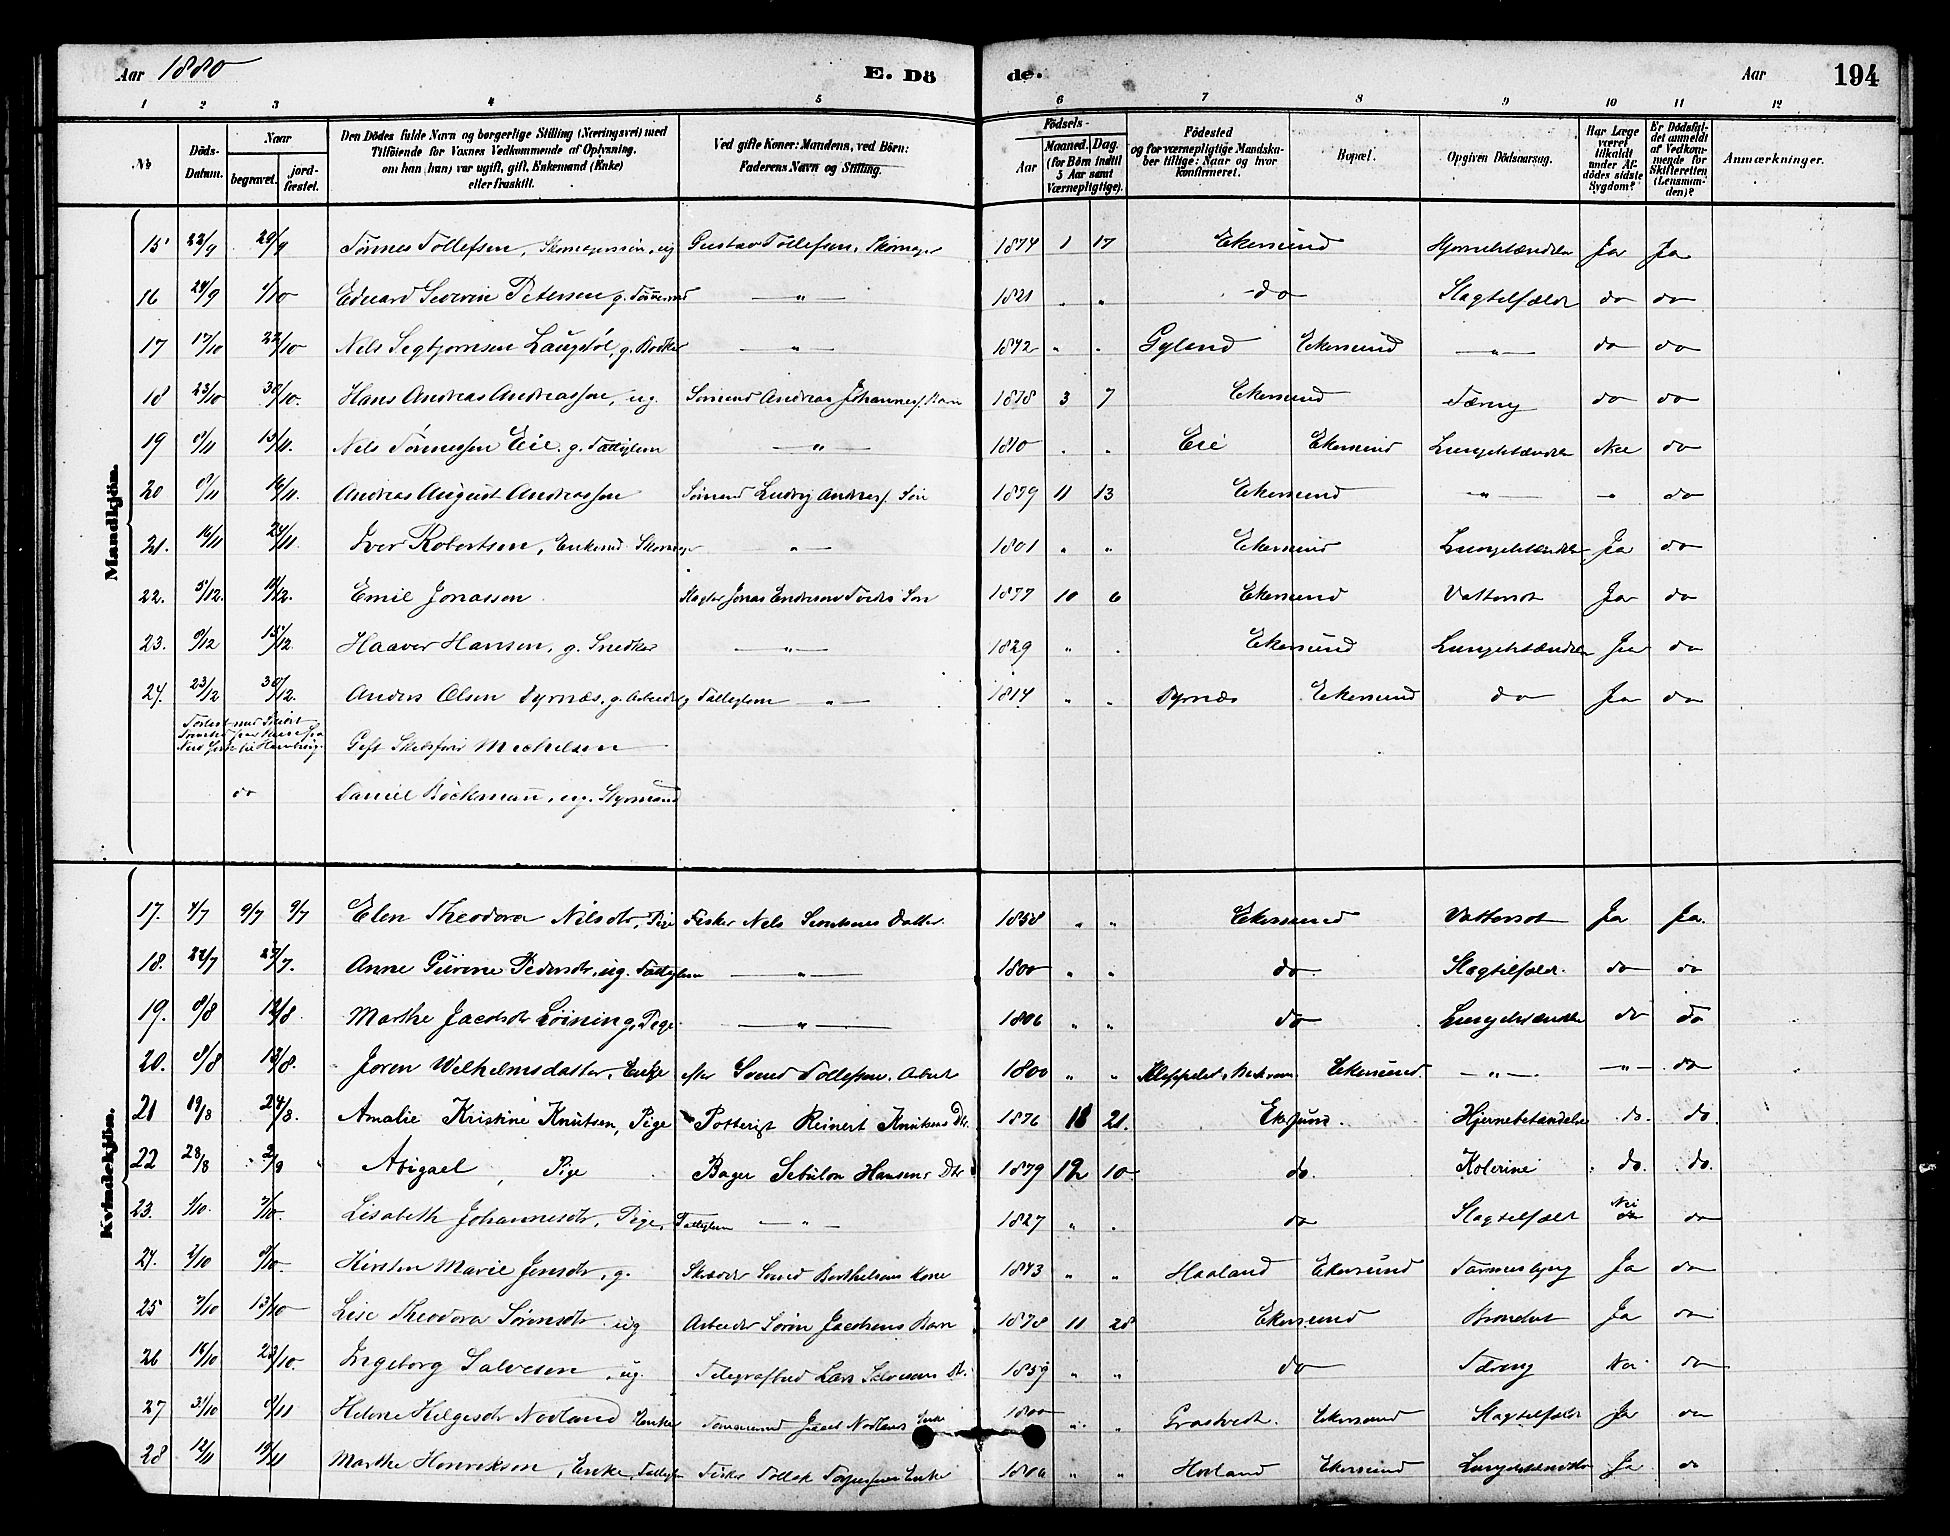 Aar 1880
E. Dö
de.
Aar
194
1 2 3 4 5 6 7 8 9 10 11 12
№
Döds-Datum.
Naar
begravet.
jordfæstet.
Den Dödes fulde Navn og borgerlige Stilling (Næringsvei) med Tilföiende for Voxnes Vedkommende af Oplysning, om han (hun) var ugift, gift, Enkemand (Enke) eller fraskilt.
Ved gifte Koner: Mandens, ved Börn: Faderens Navn og Stilling.
Födsels-
Aar
Maaned. Dag.
(for Börn indtil 5 Aar samt Værnepligtige).
Födested og for værnepligtige Mandskaber tillige: Naar og hvor konfirmeret.
Bopæl.
Opgiven Dödsaarsag.
Har Læge været tilkaldt under Afdödes sidste Sygdom?
Er Dödsfaldet anmeldt af Vedkommende for Skifteretten (Lensmanden)?
Anmærkninger.
Mandkjön.
15 22/9 29/9 Tönnes Tollefsen, Skomagersön, ug Gustav Tollefsen, Skomager 1874 1 17 Ekersund Hjernebetændelse Ja Ja
16 24/9 1/10 Eduard Severin Petersen g. — " — 1821 " " do Slagtilfælde do do
17 17/10 22/10 Nels Segbjornsen g. Bødker — " — 1842 " " Gyland Ekersund — " — do do
18 23/10 30/10. Hans Andreas Andreassen, ug. Sömand Andreas Johannes. Barn 1878 3 7 Ekersund Tæring do do
19 8/11 15/11. Nels Tönnessen Eie. g. Fattiglem — " — 1810 " " Eie Ekersund Lungebetændelse Nei do
20 9/11 16/11. Andreas August Andreassen Sömand Ludvig Andreas. Sön 1879 11 13 Ekersund — " — " do
21. 16/11 24/11. Iver Robertsen, Enkemd Skomager — " — 1801 " " Ekersund Lungebetændelse Ja do
22. 5/12. 12. Emil Jonassen Slagter Jonas Endresen Sön 1877 10 6 Ekersund Vattersot Ja do
23. 9/12 15/12. Haaver Hansen, g. Snedker — " — 1829 " " Ekersund Lungebetændelse Ja do
24. 23/12 30/12. Anders Olsen Dyrnæs, g. Arbeider, Fattiglem — " — 1814 " " Dyrnæs Ekersund do Ja do
Gift Skibsförer Mechelsen
do Daniel Böckmann, ug. Styrmand
Kvindekjön.
17. 4/7 9/7 9/7 Elen Theodora Nilsdtr, Pige Fisker Nels Datter. 1858 " " Ekersund Vattersot Ja Ja.
18. 22/7 27/7. Anne Gurine Pedersdtr, ug. Fattiglem — " — 1800 " " do Slagtilfælde. do do
19. 8/8 12/8 Marthe Jacobsdtr Löining, Pige — " — 1806 " " do Lungebetændelse do do
20. 8/8 13/8. Joren Wilhelmsdatter, Enke efter Svend Tollefsen. Arbeid 1800 " " Ekersund. — " — — " — do
21 19/8 24/8. Amalie Kristine Knutsen, Pige Reinert Knutsens Dtr. 1876 18 21. Ekersund. Hjernebetændelse do. do
22 28/8 2/9 Abigael, Pige Bager Sebulon Hansens Dtr 1879 12 10 do. Kolerine do. do.
23. 1/10. 7/10. Lisabeth Johannesdtr, Pige, Fattiglem — " — 1827 " " do Slagtilfælde Nei do
24. 2/10 8/10. Kirsten Marie Jensdtr, g. Skræder Svend Berthelsens Kone 1843 " " Haaland Ekersund Ja do
25 7/10 13/10 Lise Theodora Sörensdtr ug Arbeider Sörin Jacobsens Barn 1878 11 28 Ekersund Ja do
26 18/10 23/10 Ingeborg Salvesen, ug. Telegrafbud Lars Salvesens Dtr. 1859 " " do Tæring Nei do
27 31/10 8/11 Helene Helgesdtr Nodland Enke Nodlands Enke 1800 " " Grastvedt. Ekersund Slagtilfælde Ja do
28 12/11 19/11 Marthe Henriksen, Enke, Fattiglem Fisker Tollak Enke 1800 " " Hovland Ekersund Lungebetændelse Ja do